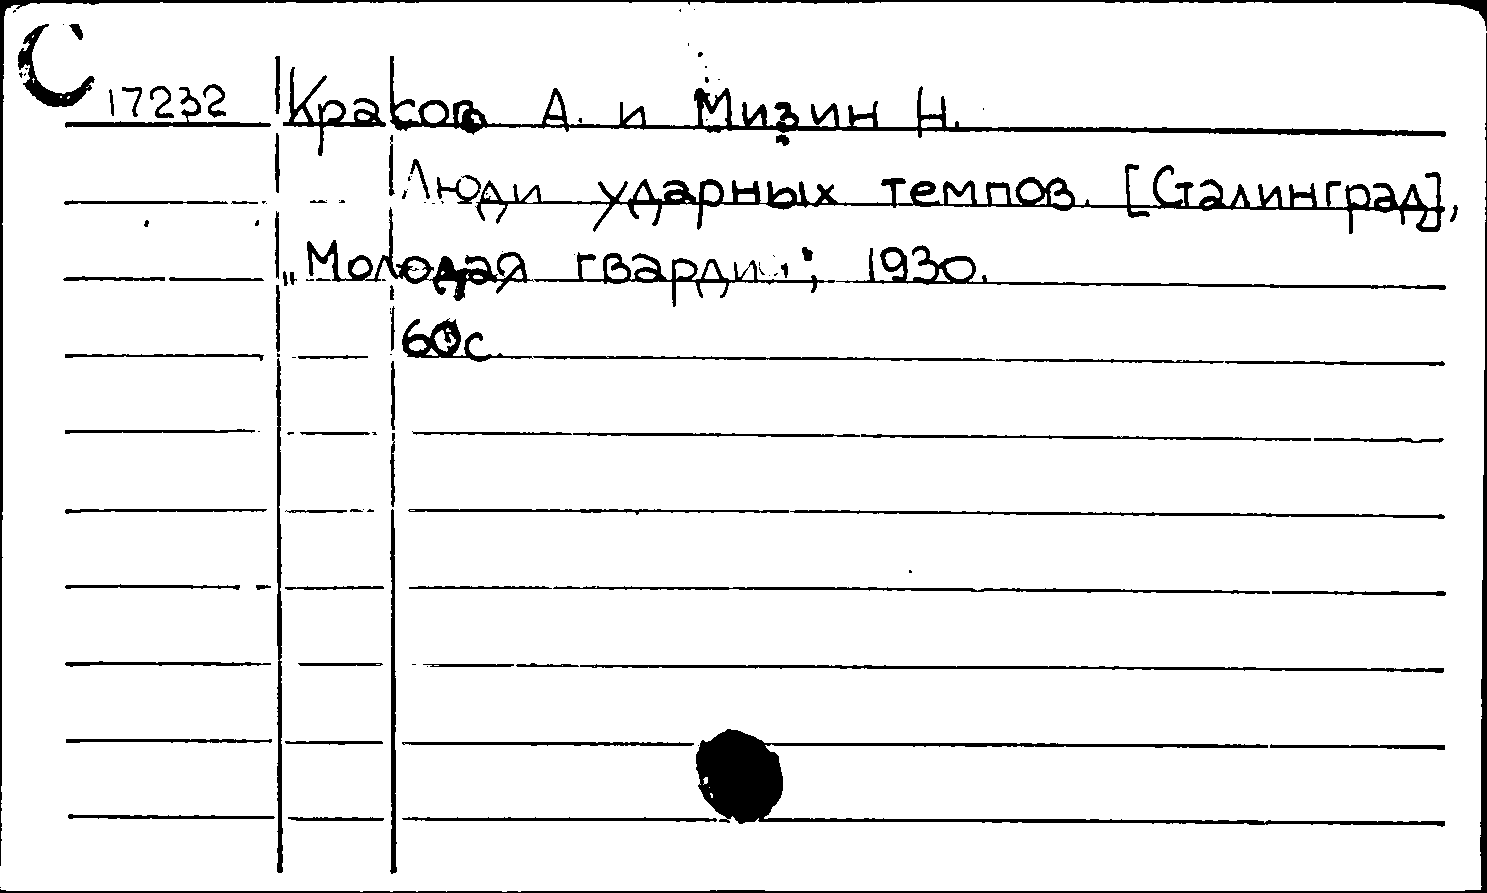 С
17232 Красов А. и Мизин Н.
Люди ударных темпов. [Сталинград],
„Молодая гвардия", 1930.
60с.